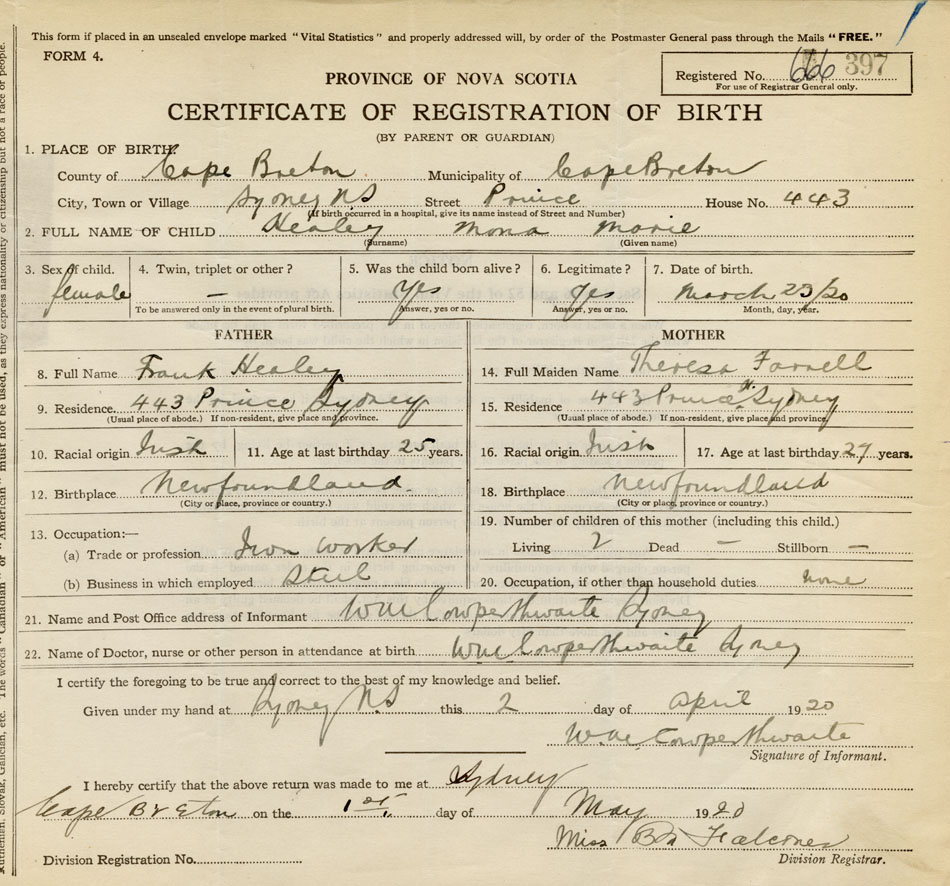 This form if placed in an unsealed envelope marked "Vital Statistics" and properly addressed will, by order of the Postmaster General pass through the Mails "FREE."
FORM 4.
Registered No. 666 397
For use of Registrar General only.
PROVINCE OF NOVA SCOTIA
CERTIFICATE OF REGISTRATION OF BIRTH
(BY PARENT OR GUARDIAN)
1. PLACE OF BIRTH
County of Cape Breton Municipality of Cape Breton
City, Town or Village Sydney NS Street Prince House No. 443
(If birth occurred in a hospital, give its name instead of Street and Number)
2. FULL NAME OF CHILD Healey Mona Marie
(Surname) (Given name)
3. Sex of child. 4. Twin, triplet or other? 5. Was the child born alive? 6. Legitimate? 7. Date of birth.
female — Yes Yes March 23/20
To be answered only in the event of plural birth. Answer, yes or no. Answer, yes or no. Month, day, year.
FATHER MOTHER
8. Full Name Frank Healey 14. Full Maiden Name Theresa Farrell
9. Residence 443 Prince Sydney 15. Residence 443 Prince St. Sydney
(Usual place of abode.) If non-resident, give place and province. (Usual place of abode.) If non-resident, give place and province
10. Racial origin Irish 11. Age at last birthday 25 years. 16. Racial origin Irish 17. Age at last birthday 27 years.
12. Birthplace Newfoundland 18. Birthplace Newfoundland
(City or place, province or country.) (City or place, province or country.)
13. Occupation:— 19. Number of children of this mother (including this child.)
(a) Trade or profession Iron Worker Living 2 Dead — Stillborn —
(b) Business in which employed Steel 20. Occupation, if other than household duties none
21. Name and Post Office address of Informant Wm Cowperthwaite Sydney
22. Name of Doctor, nurse or other person in attendance at birth Wm Cowperthwaite Sydney
I certify the foregoing to be true and correct to the best of my knowledge and belief.
Given under my hand at Sydney NS this 2 day of April 1920
Wm Cowperthwaite
Signature of Informant.
I hereby certify that the above return was made to me at Sydney
Cape Breton on the 1st day of May 1920
Miss Falconer
Division Registration No. Division Registrar.
Ruthenian, Slovak, Galician, etc. The words "Canadian" or "American" must not be used, as they express nationality or citizenship but not a race or people.